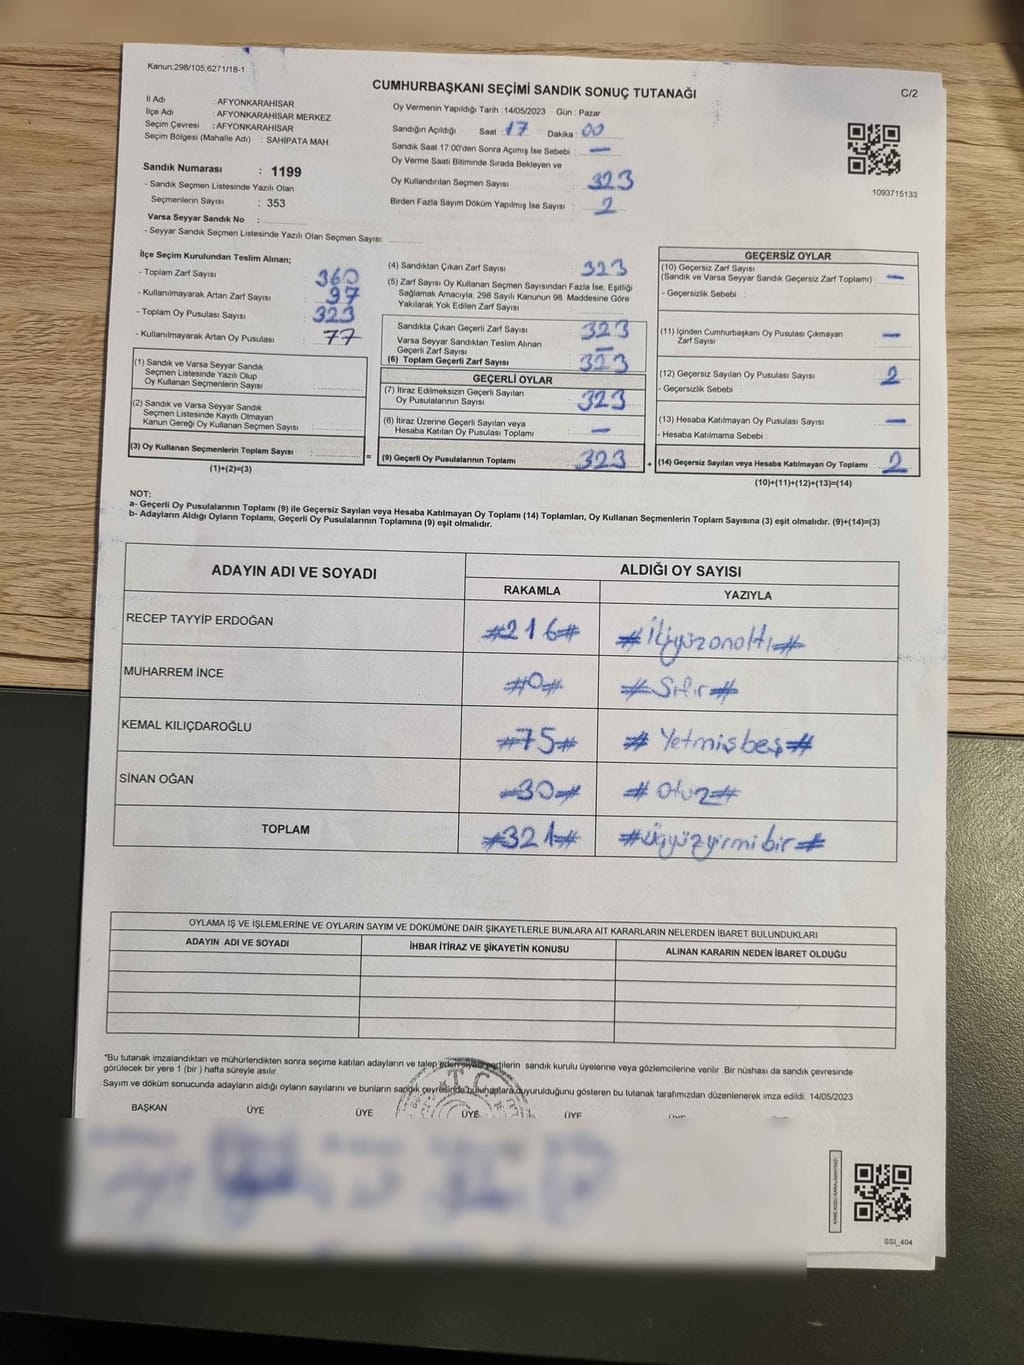 Kanun;298/105,6271/18-1
CUMHURBAŞKANI SEÇİMİ SANDIK SONUÇ TUTANAĞI
C/2
İl Adı : AFYONKARAHİSAR
İlçe Adı : AFYONKARAHİSAR MERKEZ
Seçim Çevresi : AFYONKARAHİSAR
Seçim Bölgesi (Mahalle Adı) : SAHİPATA MAH.
Sandık Numarası : 1199
- Sandık Seçmen Listesinde Yazılı Olan
Seçmenlerin Sayısı : 353
Varsa Seyyar Sandık No :
- Seyyar Sandık Seçmen Listesinde Yazılı Olan Seçmen Sayısı:
Oy Vermenin Yapıldığı Tarih : 14/05/2023 Gün : Pazar
Sandığın Açıldığı Saat : 17 Dakika : 00
Sandık Saat 17:00'den Sonra Açımış İse Sebebi : —
Oy Verme Saati Bitiminde Sırada Bekleyen ve
Oy Kullandırılan Seçmen Sayısı : 323
Birden Fazla Sayım Döküm Yapılmış İse Sayısı : 2
1093715133
İlçe Seçim Kurulundan Teslim Alınan;
- Toplam Zarf Sayısı : 360
- Kullanılmayarak Artan Zarf Sayısı : 97
- Toplam Oy Pusulası Sayısı : 323
- Kullanılmayarak Artan Oy Pusulası : 77
(1) Sandık ve Varsa Seyyar Sandık
Seçmen Listesinde Yazılı Olup
Oy Kullanan Seçmenlerin Sayısı :
(2) Sandık ve Varsa Seyyar Sandık
Seçmen Listesinde Kayıtlı Olmayan
Kanun Gereği Oy Kullanan Seçmen Sayısı :
(3) Oy Kullanan Seçmenlerin Toplam Sayısı :
(1)+(2)=(3)
(4) Sandıktan Çıkan Zarf Sayısı : 323
(5) Zarf Sayısı Oy Kullanan Seçmen Sayısından Fazla İse, Eşitliği
Sağlamak Amacıyla; 298 Sayılı Kanunun 98. Maddesine Göre
Yakılarak Yok Edilen Zarf Sayısı :
Sandıkta Çıkan Geçerli Zarf Sayısı : 323
Varsa Seyyar Sandıktan Teslim Alınan
Geçerli Zarf Sayısı : —
(6) Toplam Geçerli Zarf Sayısı : 323
GEÇERLİ OYLAR
(7) İtiraz Edilmeksizin Geçerli Sayılan
Oy Pusulalarının Sayısı : 323
(8) İtiraz Üzerine Geçerli Sayılan veya
Hesaba Katılan Oy Pusulası Toplamı : —
= (9) Geçerli Oy Pusulalarının Toplamı : 323
GEÇERSİZ OYLAR
(10) Geçersiz Zarf Sayısı
(Sandık ve Varsa Seyyar Sandık Geçersiz Zarf Toplamı) : —
- Geçersizlik Sebebi :
(11) İçinden Cumhurbaşkanı Oy Pusulası Çıkmayan
Zarf Sayısı : —
(12) Geçersiz Sayılan Oy Pusulası Sayısı : 2
- Geçersizlik Sebebi :
(13) Hesaba Katılmayan Oy Pusulası Sayısı : —
- Hesaba Katılmama Sebebi :
+ (14) Geçersiz Sayılan veya Hesaba Katılmayan Oy Toplamı : 2
(10)+(11)+(12)+(13)=(14)
NOT:
a- Geçerli Oy Pusulalarının Toplamı (9) ile Geçersiz Sayılan veya Hesaba Katılmayan Oy Toplamı (14) Toplamları, Oy Kullanan Seçmenlerin Toplam Sayısına (3) eşit olmalıdır. (9)+(14)=(3)
b- Adayların Aldığı Oyların Toplamı, Geçerli Oy Pusulalarının Toplamına (9) eşit olmalıdır.
ADAYIN ADI VE SOYADI ALDIĞI OY SAYISI
RAKAMLA YAZIYLA
RECEP TAYYİP ERDOĞAN #216# #İkiyüzonaltı#
MUHARREM İNCE #0# #Sıfır#
KEMAL KILIÇDAROĞLU #75# #Yetmişbeş#
SİNAN OĞAN #30# #Otuz#
TOPLAM #321# #Üçyüzyirmibir#
OYLAMA İŞ VE İŞLEMLERİNE VE OYLARIN SAYIM VE DÖKÜMÜNE DAİR ŞİKAYETLERLE BUNLARA AİT KARARLARIN NELERDEN İBARET BULUNDUKLARI
ADAYIN ADI VE SOYADI İHBAR İTİRAZ VE ŞİKAYETİN KONUSU ALINAN KARARIN NEDEN İBARET OLDUĞU
*Bu tutanak imzalandıktan ve mühürlendikten sonra seçime katılan adayların ve talep eden siyasi partilerin sandık kurulu üyelerine veya gözlemcilerine verilir. Bir nüshası da sandık çevresinde
görülecek bir yere 1 (bir ) hafta süreyle asılır.
Sayım ve döküm sonucunda adayların aldığı oyların sayılarını ve bunların sandık çevresinde bulunanlara duyurulduğunu gösteren bu tutanak tarafımızdan düzenlenerek imza edildi. 14/05/2023
BAŞKAN ÜYE ÜYE ÜYE ÜYE ÜYE
T.C.
SSI_404